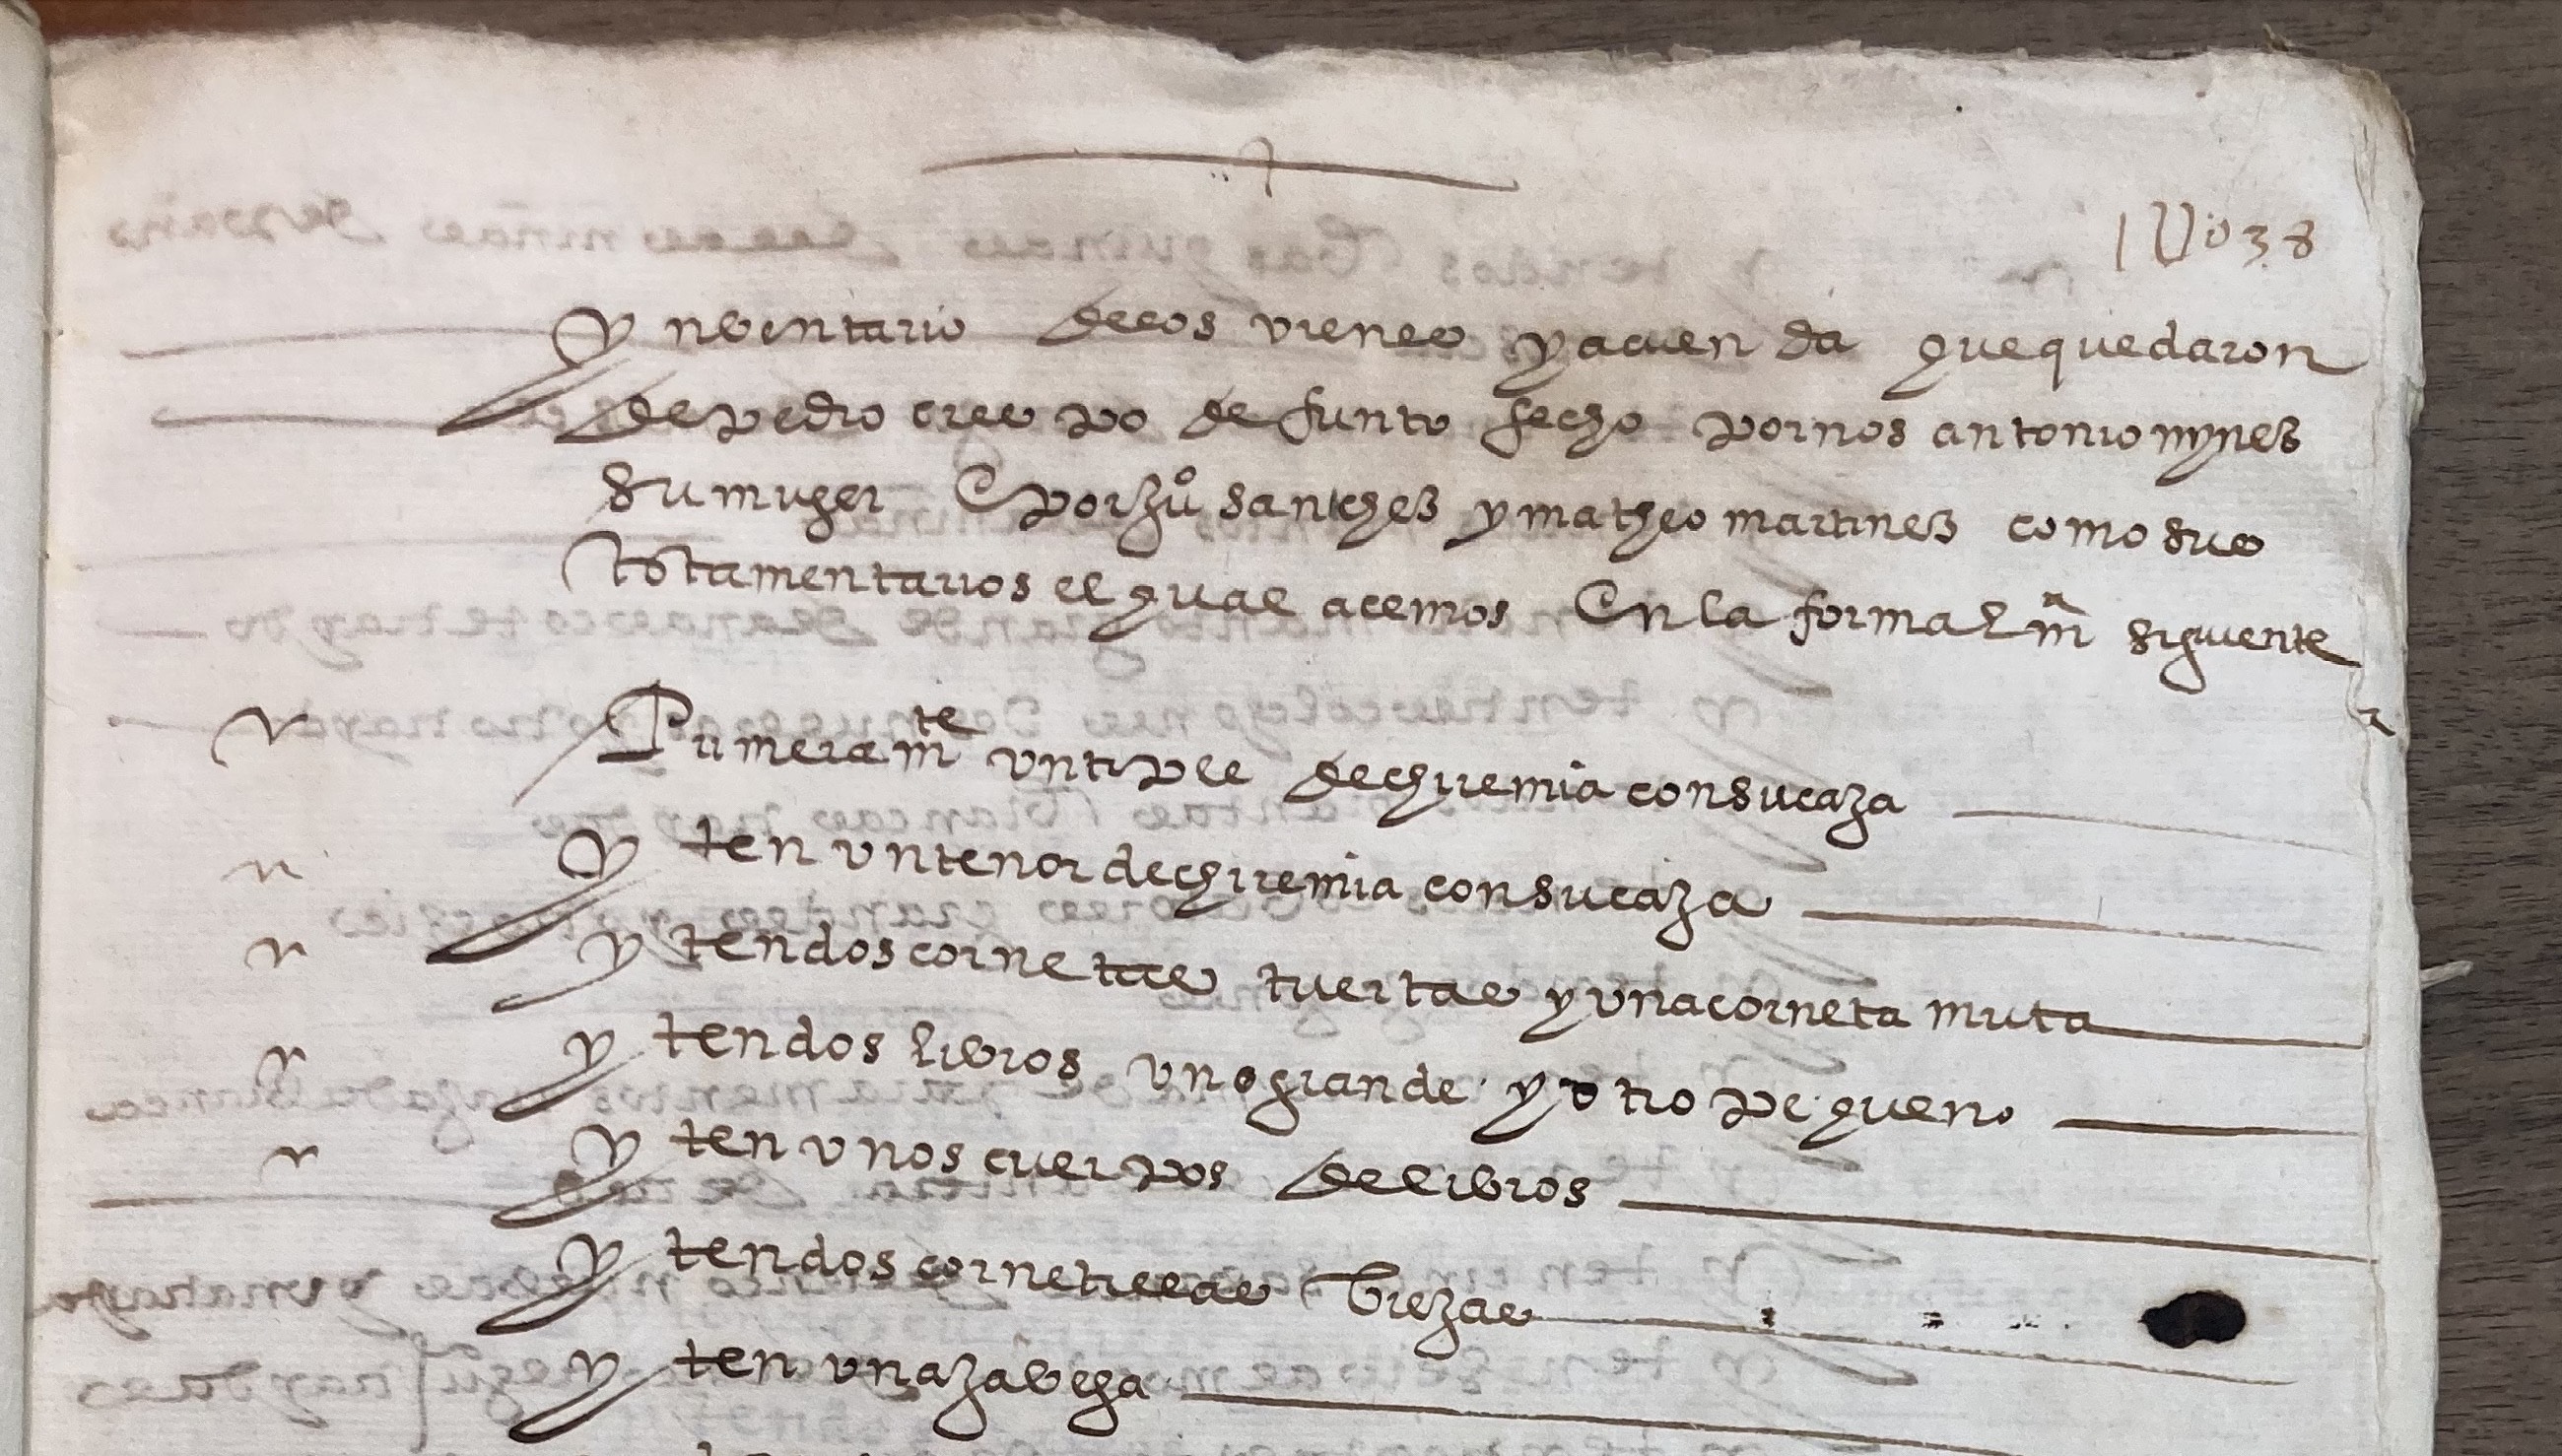 1 U038
ynbentario delos vienes y acienda que quedaron
de pedro crespo defunto fecho por nos antonio mynes
su muger e por juº sanches y matheo martines como sus
testamentarios el qual acemos en la forma e mª siguiente
Primeramte un tiple de chiremia con su caja
yten un tenor de chiremia con su caja
yten dos cornetas tuertas y una corneta muta
yten dos libros uno grande y otro pequeno
yten unos cuerpos de libros
yten dos cornetillas biejas
yten una jabega